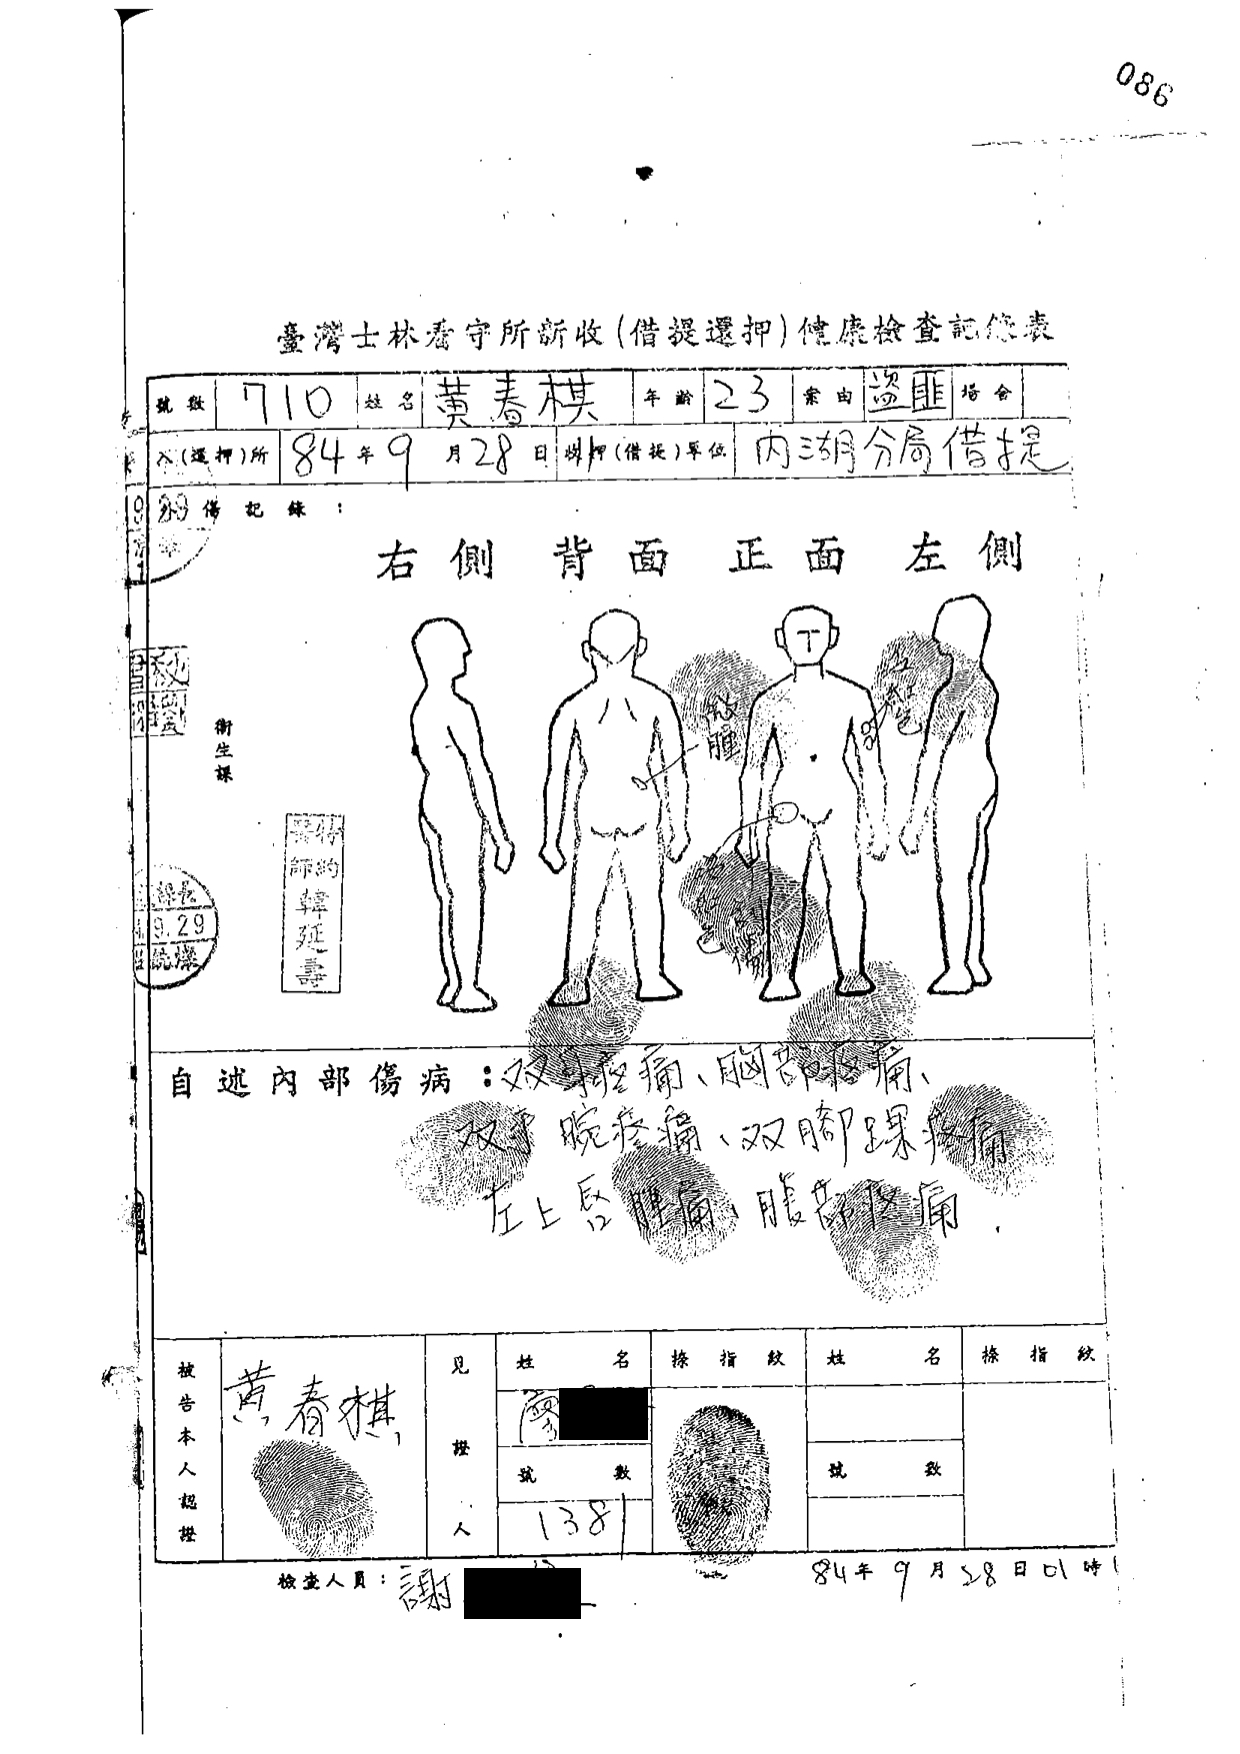 086
臺灣士林看守所新收(借提還押)健康檢查記錄表
號數 710 姓名 黃春棋 年齡 23 案由 盜匪 場舍
入(還押)所 84年9月28日 押(借提)單位 內湖分局借提
外傷記錄：
右側 背面 正面 左側
紅色
腫
衛生課
特約
醫師韓延壽
課長
9.29
自述內部傷病：双耳疼痛、胸部疼痛、
双手腕疼痛、双腳踝疼痛
左上唇腫痛、腹部疼痛.
被告本人認證 黃春棋
見證人
姓名 採指紋 姓名 採指紋
廖
號數 號數
1381
檢查人員：謝
84年9月28日01時